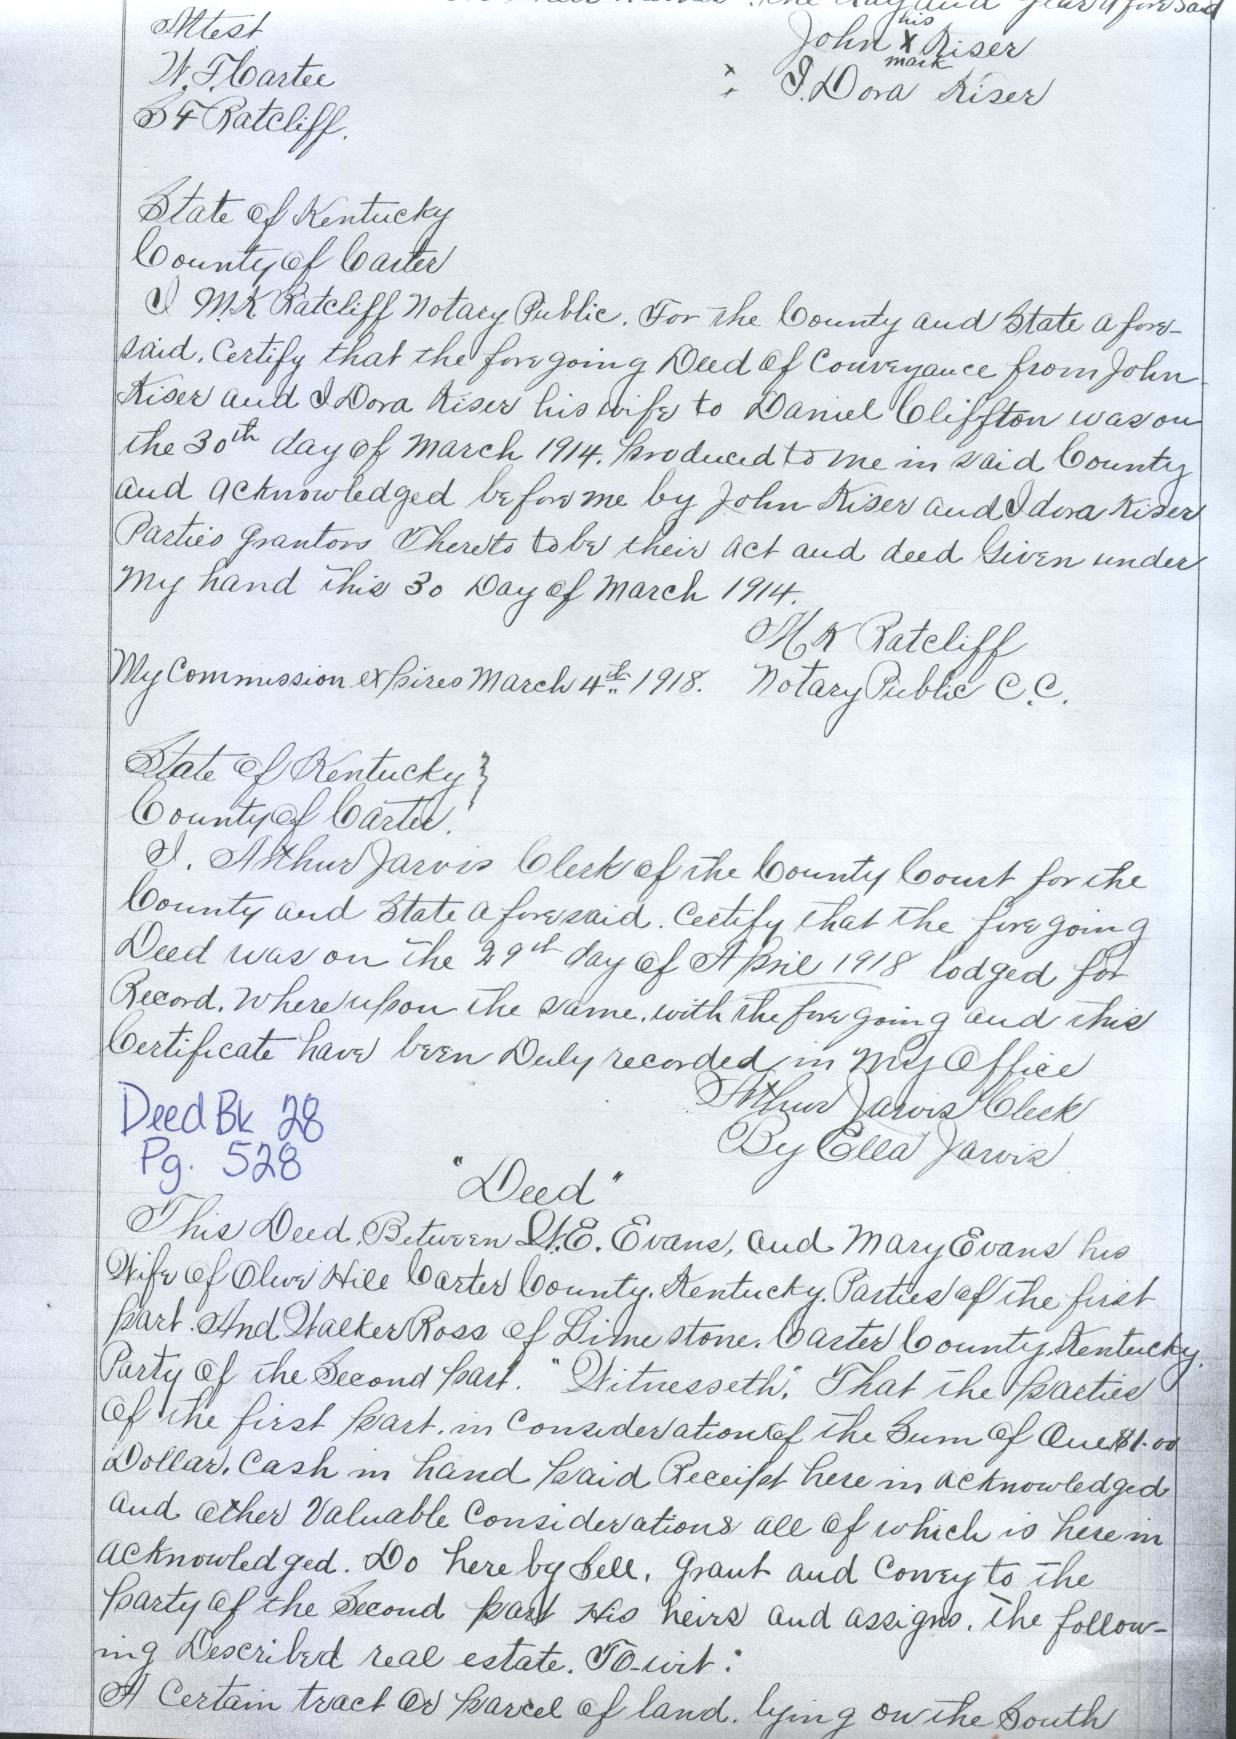 the day and year afore said
Attest
his
John X Kiser
mark
W. F. Cartee
I. Dora Kiser
S F Ratcliff.
State of Kentucky
County of Carter
I M.K Ratcliff Notary Public. For the County and State afore-
said. Certify that the fore going Deed of Conveyance from John
Kiser and I Dora Kiser his wife to Daniel Cliffton was on
the 30th day of March 1914. produced to me in said County
and acknowledged before me by John Kiser and I dora Kiser
Parties Grantors Thereto to be their act and deed Given under
My hand this 30 Day of March 1914.
M K Ratcliff
My Commission expires March 4th 1918. Notary Public C.C.
State of Kentucky }
County of Carter.
I. Arthur Jarvis Clerk of the County Court for the
County and State afore said. Certify that the fore going
Deed was on the 29th day of April 1918 lodged for
Record. Where upon the same. with the fore going and this
Certificate have been Duly recorded in my Office
Arthur Jarvis Clerk
By Ella Jarvis
Deed Bk 28
Pg. 528
"Deed"
This Deed. Between W.E. Evans, and Mary Evans his
Wife of Olive Hill Carter County. Kentucky. Parties of the first
part. And Walker Ross of Lime stone. Carter County, Kentucky.
Party of the Second part. "Witnesseth." That the parties
of the first part. in Consideration of the Sum of One $1.00
Dollar. Cash in hand paid Receipt here in acknowledged
and other Valuable Considerations all of which is here in
acknowledged. Do here by Sell, Grant and Convey to the
party of the Second part His heirs and assigns. The follow-
ing Described real estate. To-wit:
A Certain tract or parcel of land. lying on the South